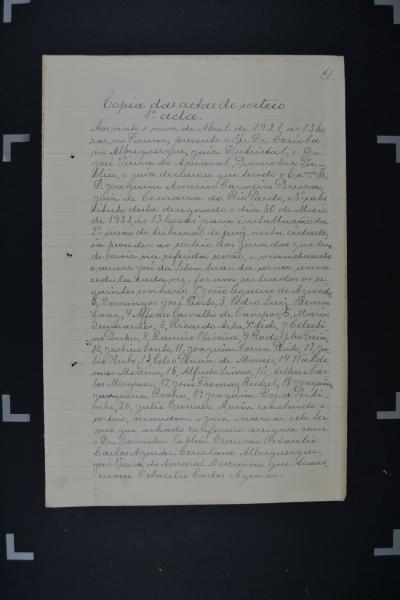 Copia das actas de sorteio
1ª acta.
Aos vinte e nove de Abril de 1921, as 13 ho
ras, no Forum, presente o Sr. Dr. Coriola
no Albuquerque, juiz Districtal, o Dr.
José Vieira do Amaral, Promotor Pu
blico, o juiz declarou que tendo o Exmo Sr.
D. Joaquim Americo Carneiro Pereira,
juiz de Comarca do Rio Pardo, e 3º subs
tituto desta designado o dia 30 de Maio
de 1921, as 13 horas para installação da
2ª sessão do tribunal do jury nesta cidade,
ia proceder ao sorteio dos jurados que tem
de servir na referida sessão, e mandando
o menor José da Silva, tirar da urna uma
cedula cada vez, foram sorteados os se
guintes senhores: 1, João Ciqueira de Azevedo,
2, Domingos José Peixto, 3, Pedro Luiz
4, Alfonso Carvalho de Campos, 5, Mario
6, Ricardo 7, Celesti
no 8, Ramiro Oliveira, 9, Rodolpho
10, 11, Joaquim Correa 12,
13, Celso Nunes de Moraes, 14, Walde
mar Medeiro, 15, Alfredo Lima, 16, Arthur Car
los 17, João Thomaz 18, Joaquim
Junqueira Rocha, 19, Joaquim Lopes
20, Julio Brenner. Assim concluido o
sorteio, mandou o juiz encerrar este ter
mo que achado conforme assigna com
o Dr. Promotor Publico. O escrivão Octacilio
Carlos Aguiar. Coriolano Albuquerque,
José Vieira do Amaral. O escrivão que trans
crevi Octacilio Carlos Aguiar.